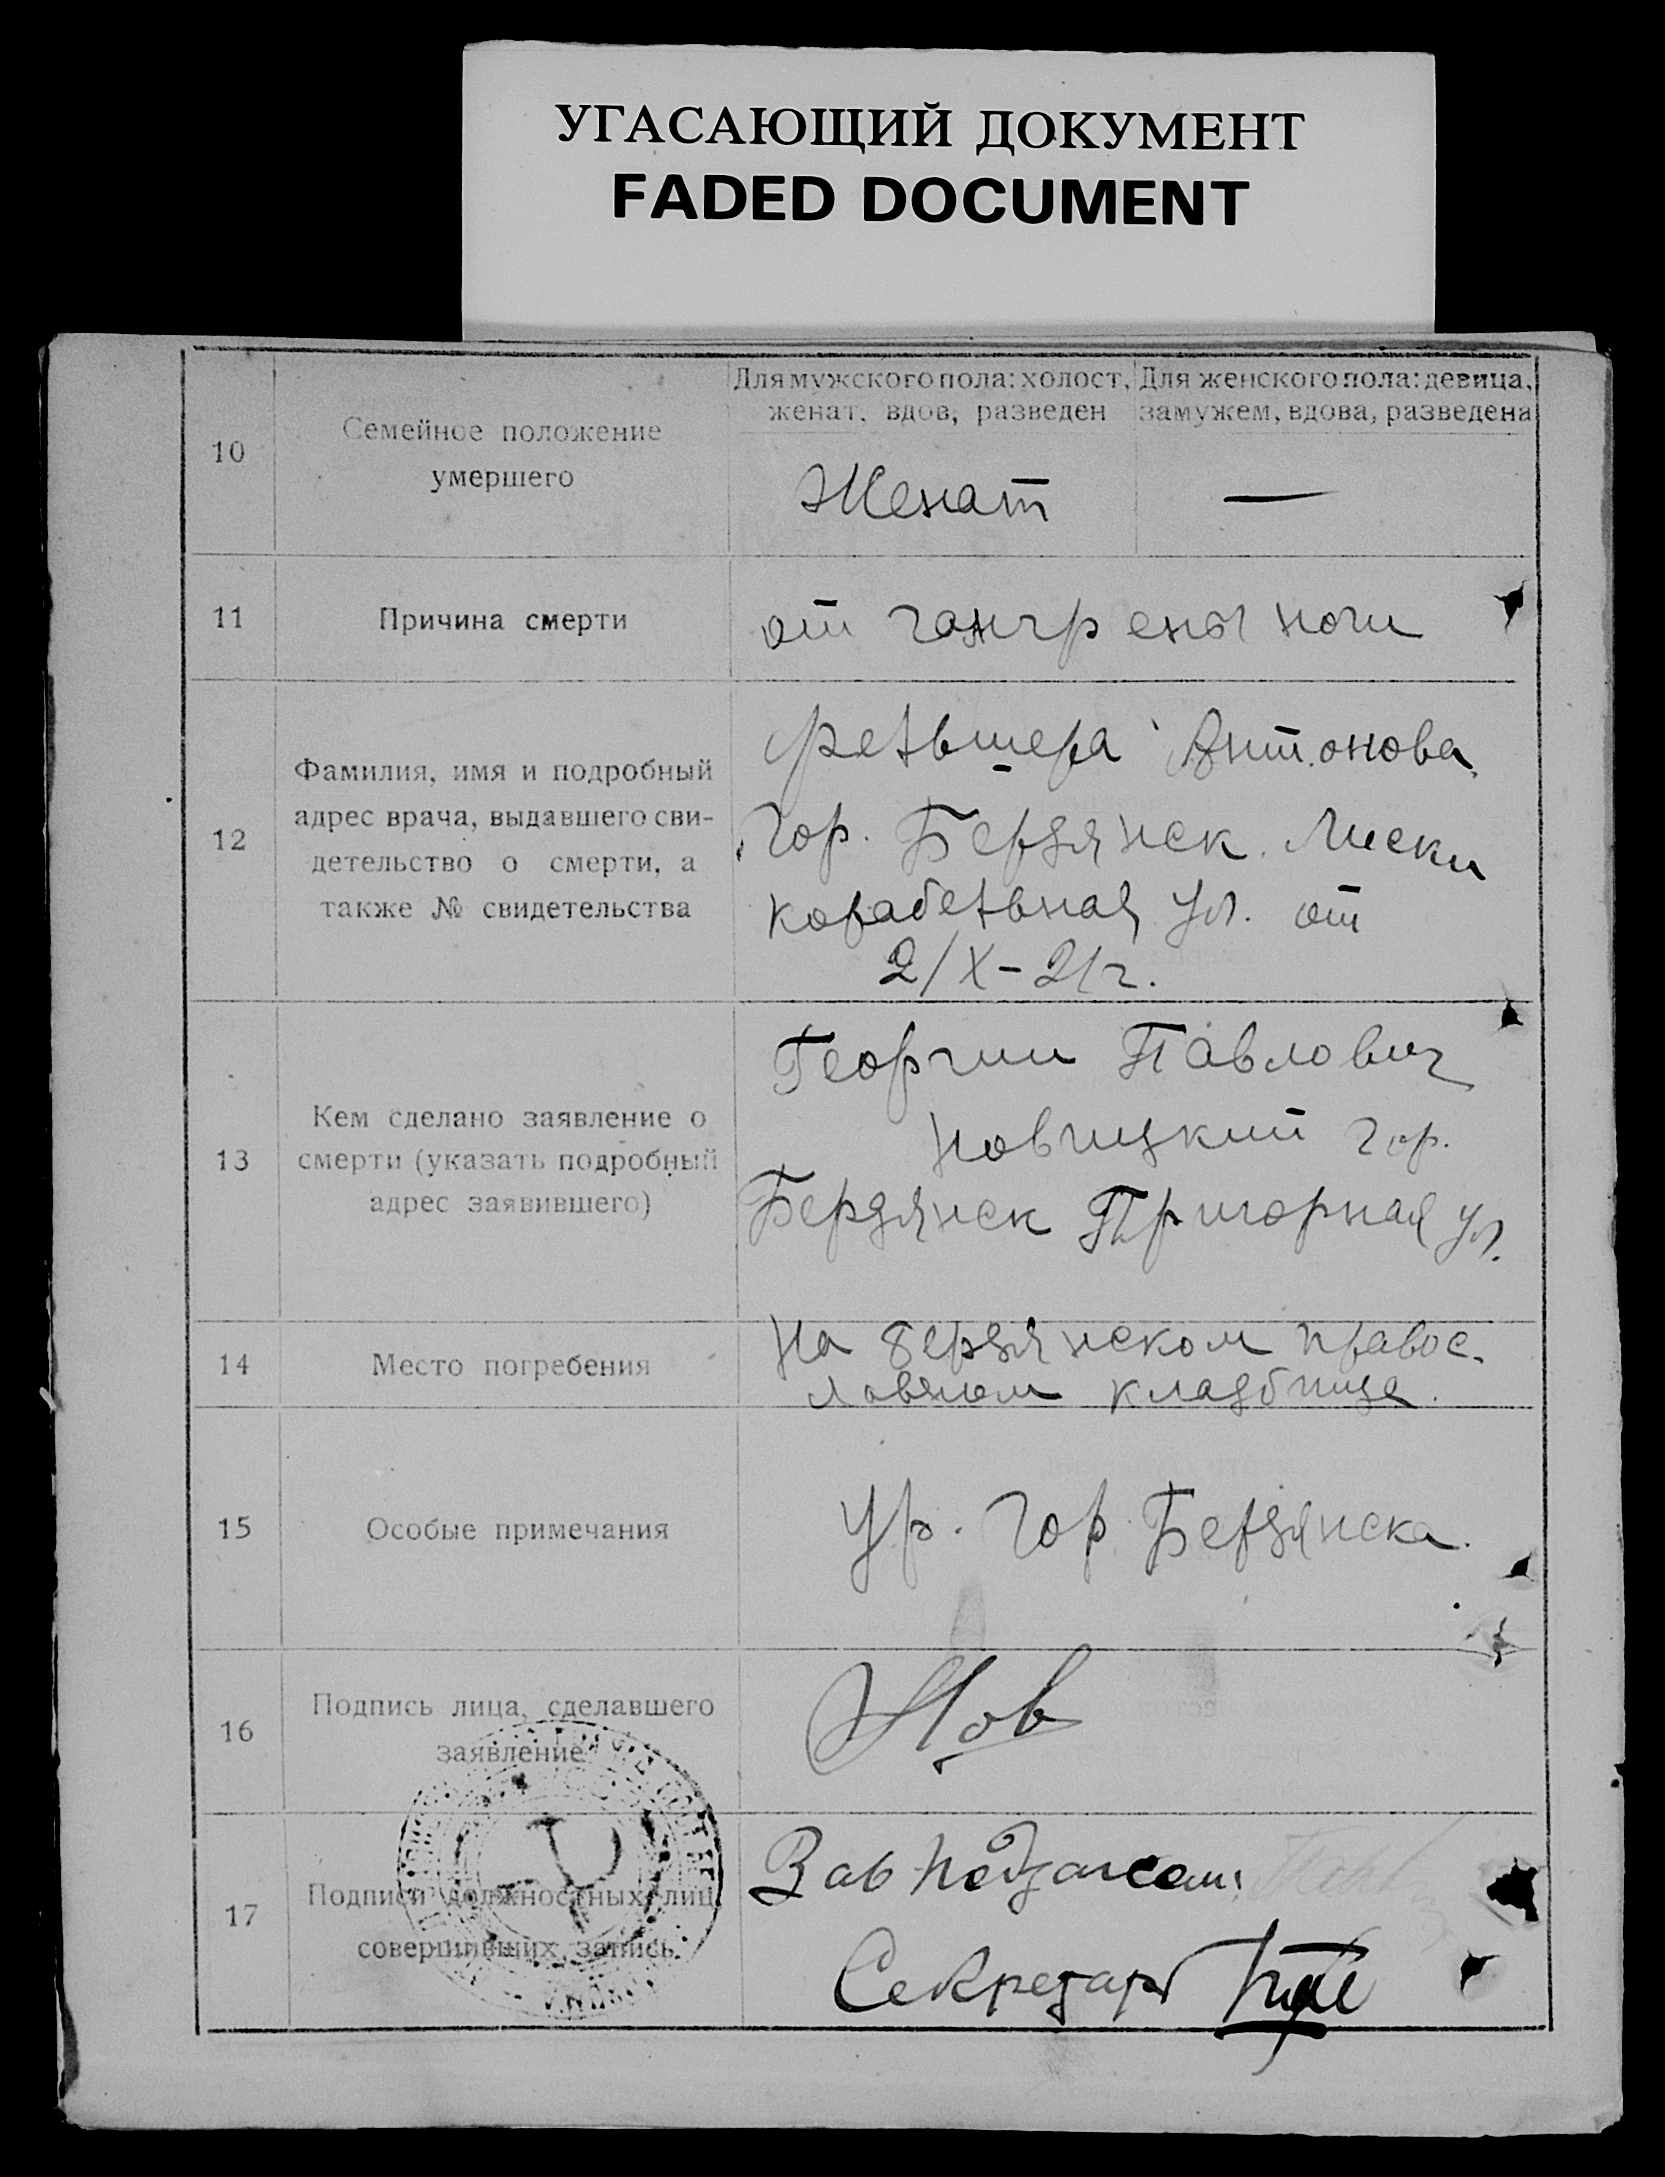 УГАСАЮЩИЙ ДОКУМЕНТ
FADED DOCUMENT
10
Семейное положение
умершего
Для мужского пола: холост,
женат, вдов, разведен
Для женского пола: девица,
замужем, вдова, разведена
Женат
—
11
Причина смерти
от гангрены ноги
12
Фамилия, имя и подробный
адрес врача, выдавшего сви-
детельство о смерти, а
также № свидетельства
фетьшера Антонова
Гор. Бердянск. Лиски
корабетьная ул. от
2/X-21г.
13
Кем сделано заявление о
смерти (указать подробный
адрес заявившего)
Георгии Павлович
Новицкий гор.
Бердянск Пригорная ул.
14
Место погребения
На бердянском правос-
лавном кладбище.
15
Особые примечания
Ур. Гор. Бердянска.
16
Подпись лица, сделавшего
заявление
Нов
17
Подписи должностных лиц,
совершивших запись.
Зав
Секретарь